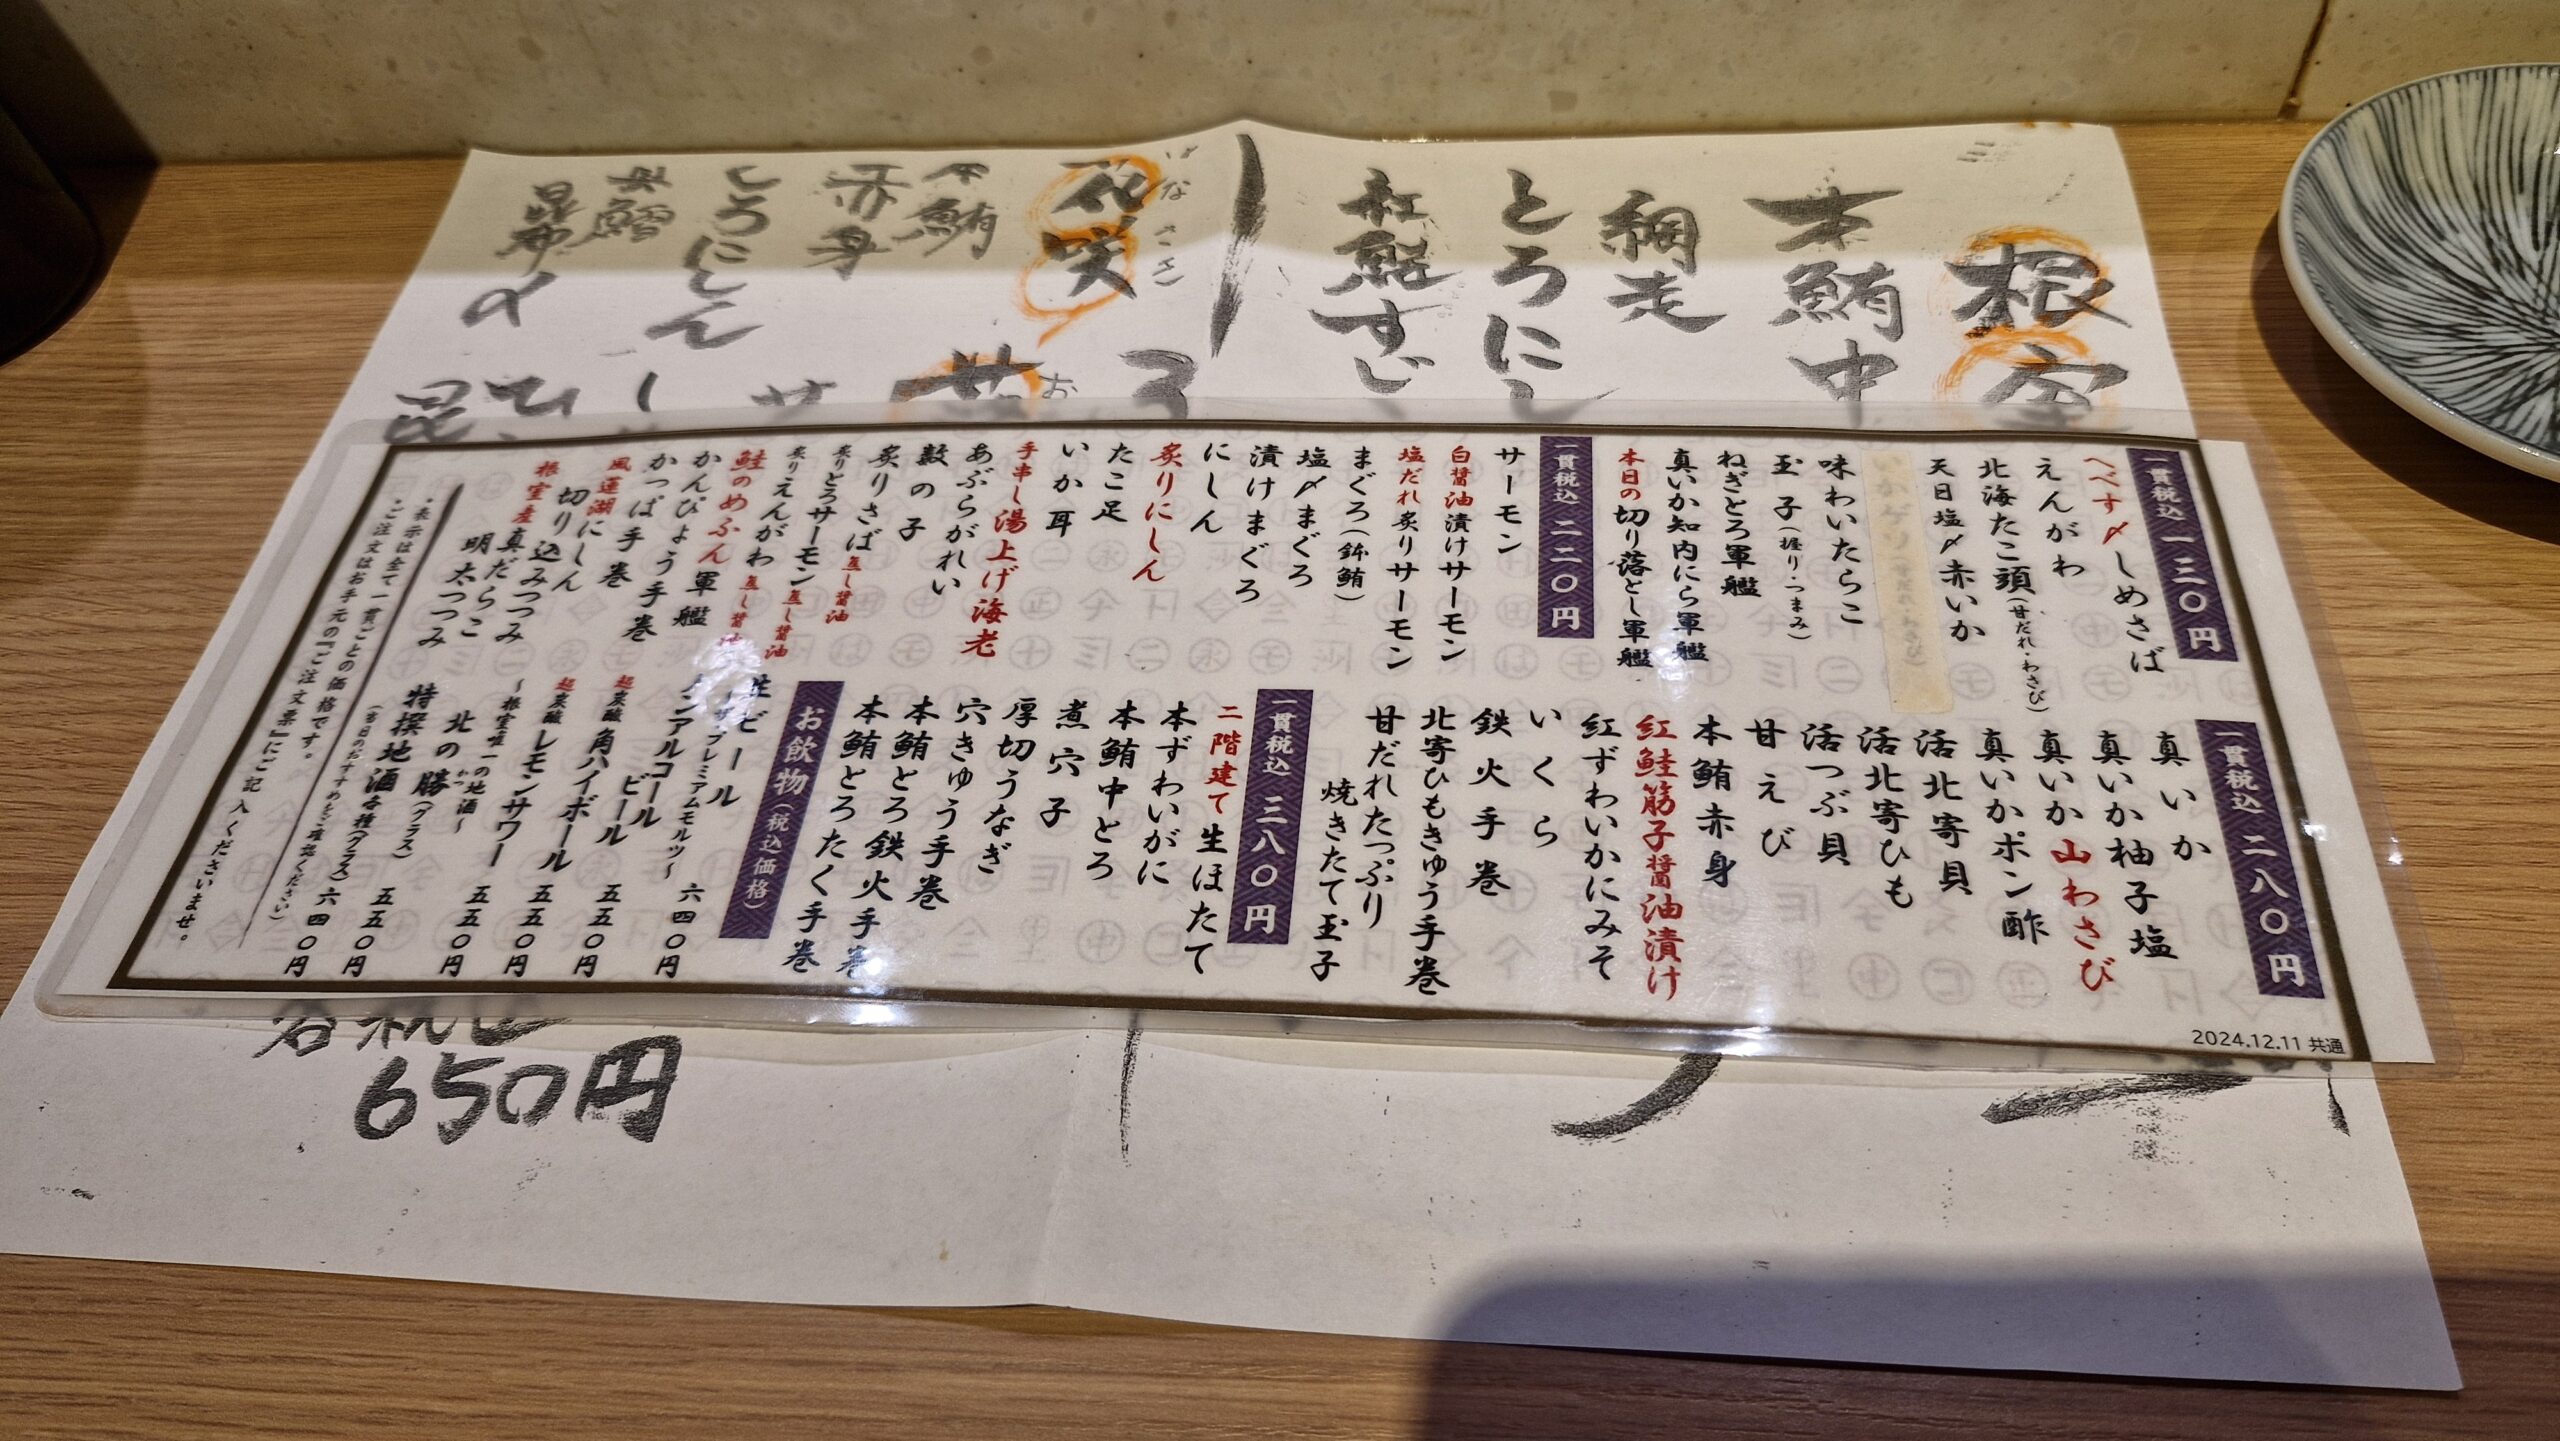 根室
本鮪中
網走
とろにし
紅鮭すじ
はなさき
花咲
本鮪
赤身
とろにしん
真鱈
昆布〆
650円
一貫税込 一二〇円
へべす〆しめさば
えんがわ
北海たこ頭(甘だれ・わさび)
天日塩〆赤いか
味わいたらこ
玉子(握り・つまみ)
ねぎとろ軍艦
真いか知内にら軍艦
本日の切り落とし軍艦
一貫税込 二二〇円
サーモン
白醤油漬けサーモン
塩だれ炙りサーモン
まぐろ(鉢鮪)
塩〆まぐろ
漬けまぐろ
にしん
炙りにしん
たこ足
いか耳
手串し湯上げ海老
あぶらがれい
数の子
炙りさば 蒸し醤油
炙りとろサーモン 蒸し醤油
炙りえんがわ 蒸し醤油
鮭のめふん軍艦
かんぴょう手巻
かっぱ手巻
風蓮湖にしん
切り込みつつみ
根室産真だらこ
明太つつみ
一貫税込 二八〇円
真いか
真いか柚子塩
真いか山わさび
真いかポン酢
活北寄貝
活北寄ひも
活つぶ貝
甘えび
本鮪赤身
紅鮭筋子醤油漬け
紅ずわいかにみそ
いくら
鉄火手巻
北寄ひもきゅう手巻
甘だれたっぷり
焼きたて玉子
一貫税込 三八〇円
二階建て生ほたて
本ずわいがに
本鮪中とろ
煮穴子
厚切うなぎ
穴きゅう手巻
本鮪とろ鉄火手巻
本鮪とろたく手巻
お飲物(税込価格)
生ビール
〜ザ・プレミアムモルツ〜 六四〇円
ノンアルコール
ビール 五五〇円
超炭酸 角ハイボール 五五〇円
超炭酸 レモンサワー 五五〇円
〜根室唯一の地酒〜
北の勝(グラス) 五五〇円
かつ
特撰地酒各種(グラス) 六四〇円
(本日のおすすめをご確認ください)
・表示は全て一貫ごとの価格です。
・ご注文はお手元の『ご注文票』にご記入くださいませ。
2024.12.11 共通